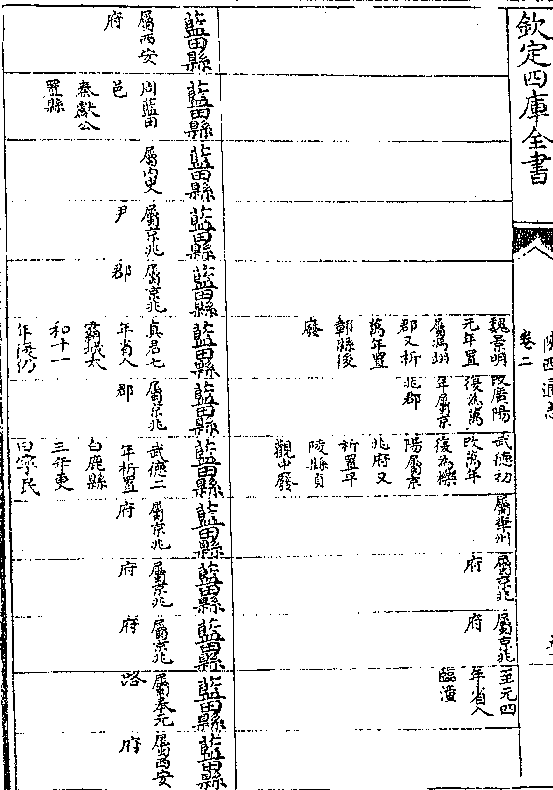 欽定四庫全書
卷二
魏景明
元年置
屬馮翊
郡又析
萬年置
鄣縣後
廢
改廣陽
復為萬
年屬京
兆郡
武德初
改萬年
復為櫟
陽屬京
兆府又
析置平
陵縣貞
觀中廢
屬華州
屬京兆
府
屬京兆
府
至元四
年省入
臨潼
藍田縣
屬西安
府
藍田縣
周藍田
邑
秦獻公
置縣
藍田縣
屬內史
藍田縣
屬京兆
尹
藍田縣
屬京兆
郡
藍田縣
真君七
年省入
霸城太
和十一
年復仍
藍田縣
屬京兆
郡
藍田縣
武德二
年析置
白鹿縣
三年更
曰寧民
藍田縣
屬京兆
府
藍田縣
屬京兆
府
藍田縣
屬京兆
府
藍田縣
屬奉元
路
藍田縣
屬西安
府